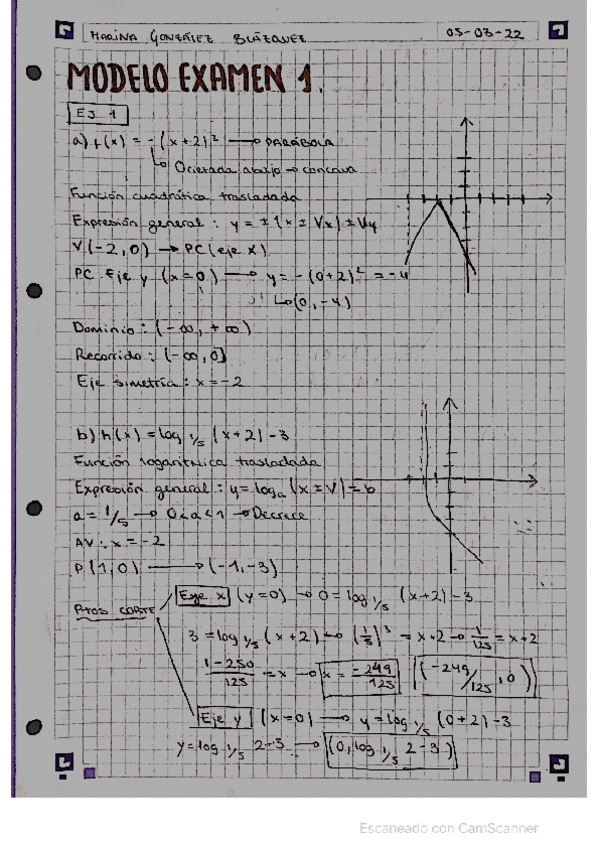 MARINA GONZÁLEZ BLÁZQUEZ 05-03-22
MODELO EXAMEN 1.
EJ. 1
a) f(x) = -(x+2)² → PARÁBOLA
↳ Orientada abajo → concava
Función cuadrática trasladada
Expresión general: y = ±(x ± Vx) ± Vy
V(-2,0) → PC (eje X)
PC Eje y (x=0) → y = -(0+2)² = -4
↳ (0,-4)
Dominio: (-∞, +∞)
Recorrido: (-∞, 0]
Eje simetría: x = -2
b) h(x) = log 1/5 (x+2) - 3
Función logarítmica trasladada
Expresión general: y = logₐ (x ± V) = b
a = 1/5 → 0<a<1 → Decrece
AV: x = -2
P(1,0) → (-1,-3)
Ptos CORTE Eje x (y=0) → 0 = log 1/5 (x+2) - 3
3 = log 1/5 (x+2) → (1/5)³ = x+2 → 1/125 = x+2
1-250/125 = x → x = -249/125 (-249/125, 0)
Eje y (x=0) → y = log 1/5 (0+2) - 3
y = log 1/5 2-3 → (0, log 1/5 2-3)
Escaneado con CamScanner